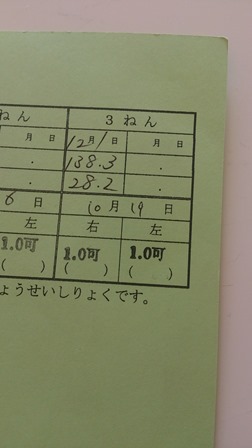 ねん 3ねん
月 日 12月1日 月 日
. 138.3 .
. 28.2 .
6 日 10月19日
左 右 左
1.0可 1.0可 1.0可
( ) ( ) ( )
ょうせいしりょくです。